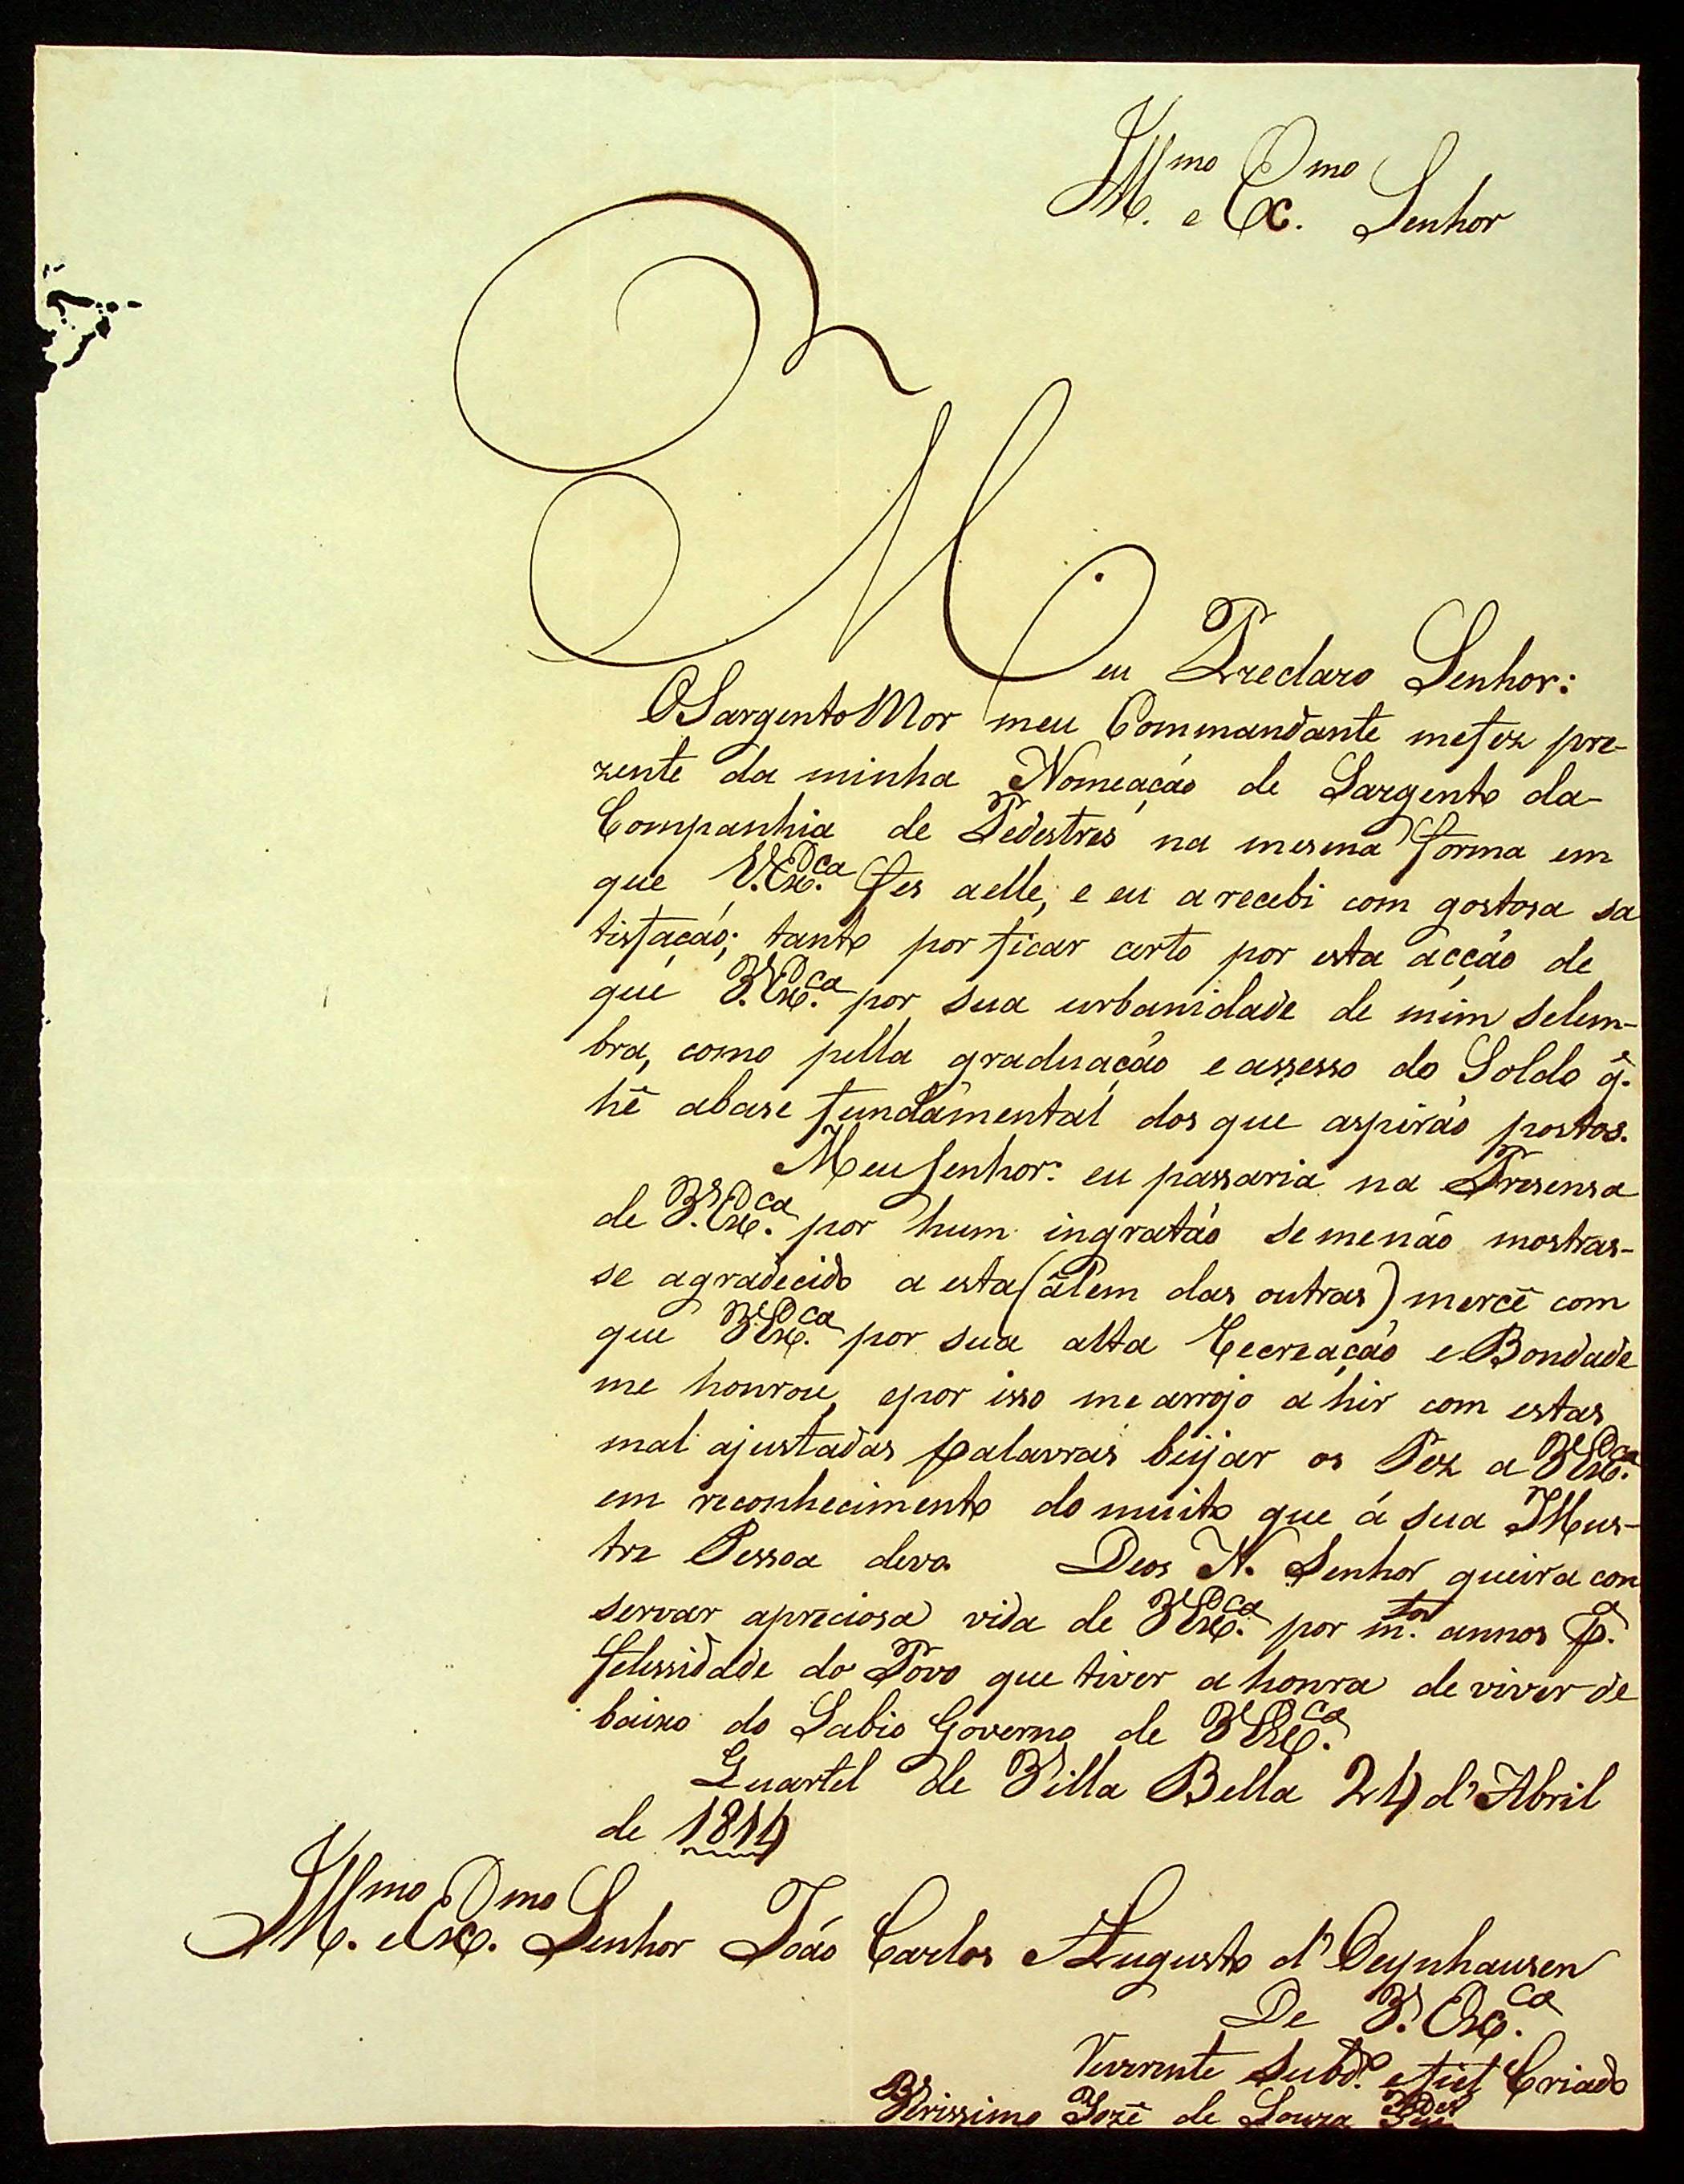 Ill.mo e Ex.mo Senhor
Meu Preclaro Senhor:
O Sargento Mor meu Commandante mefez pre-
zente da minha Nomeação de Sargento da
Companhia de Pedestres na mesma forma em
que V.Ex.ca fes aelle, e eu a recebi com gostosa sa
tisfação; tanto por ficar certo por esta acção de
que V.Ex.ca por sua urbanidade de mim selem-
bra, como pella graduação e assesso do Soldo q̃.
hé abase fundamental dos que aspirão postos.
Meu senhor: eu passaria na Presensa
de V.Ex.ca por hum ingratão semenão mostras-
se agradecido a esta (alem das outras) mercê com
que V.Ex.ca por sua alta Recreação e Bondade
me honrou, epor isso me arrojo a hir com estas
mal ajustadas palavras beijar os Pez a V.Ex.ca
em reconhecimento do muito que á sua Illus-
tre Pessoa devo. Deos N. Senhor queira con
servar apreciosa vida de V.Ex.ca por m.tos annos p.a
felessidade do Povo que tiver a honra de viver de
baixo do Sabio Governo de V.Ex.ca
Quartel de Villa Bella 24 d'Abril
de 1814
Ill.mo e Ex.mo Senhor João Carlos Augusto d'Oeynhausen
De V. Ex.ca
Reverente Subd.o e fiel Criado
Verissimo Jozé de Souza